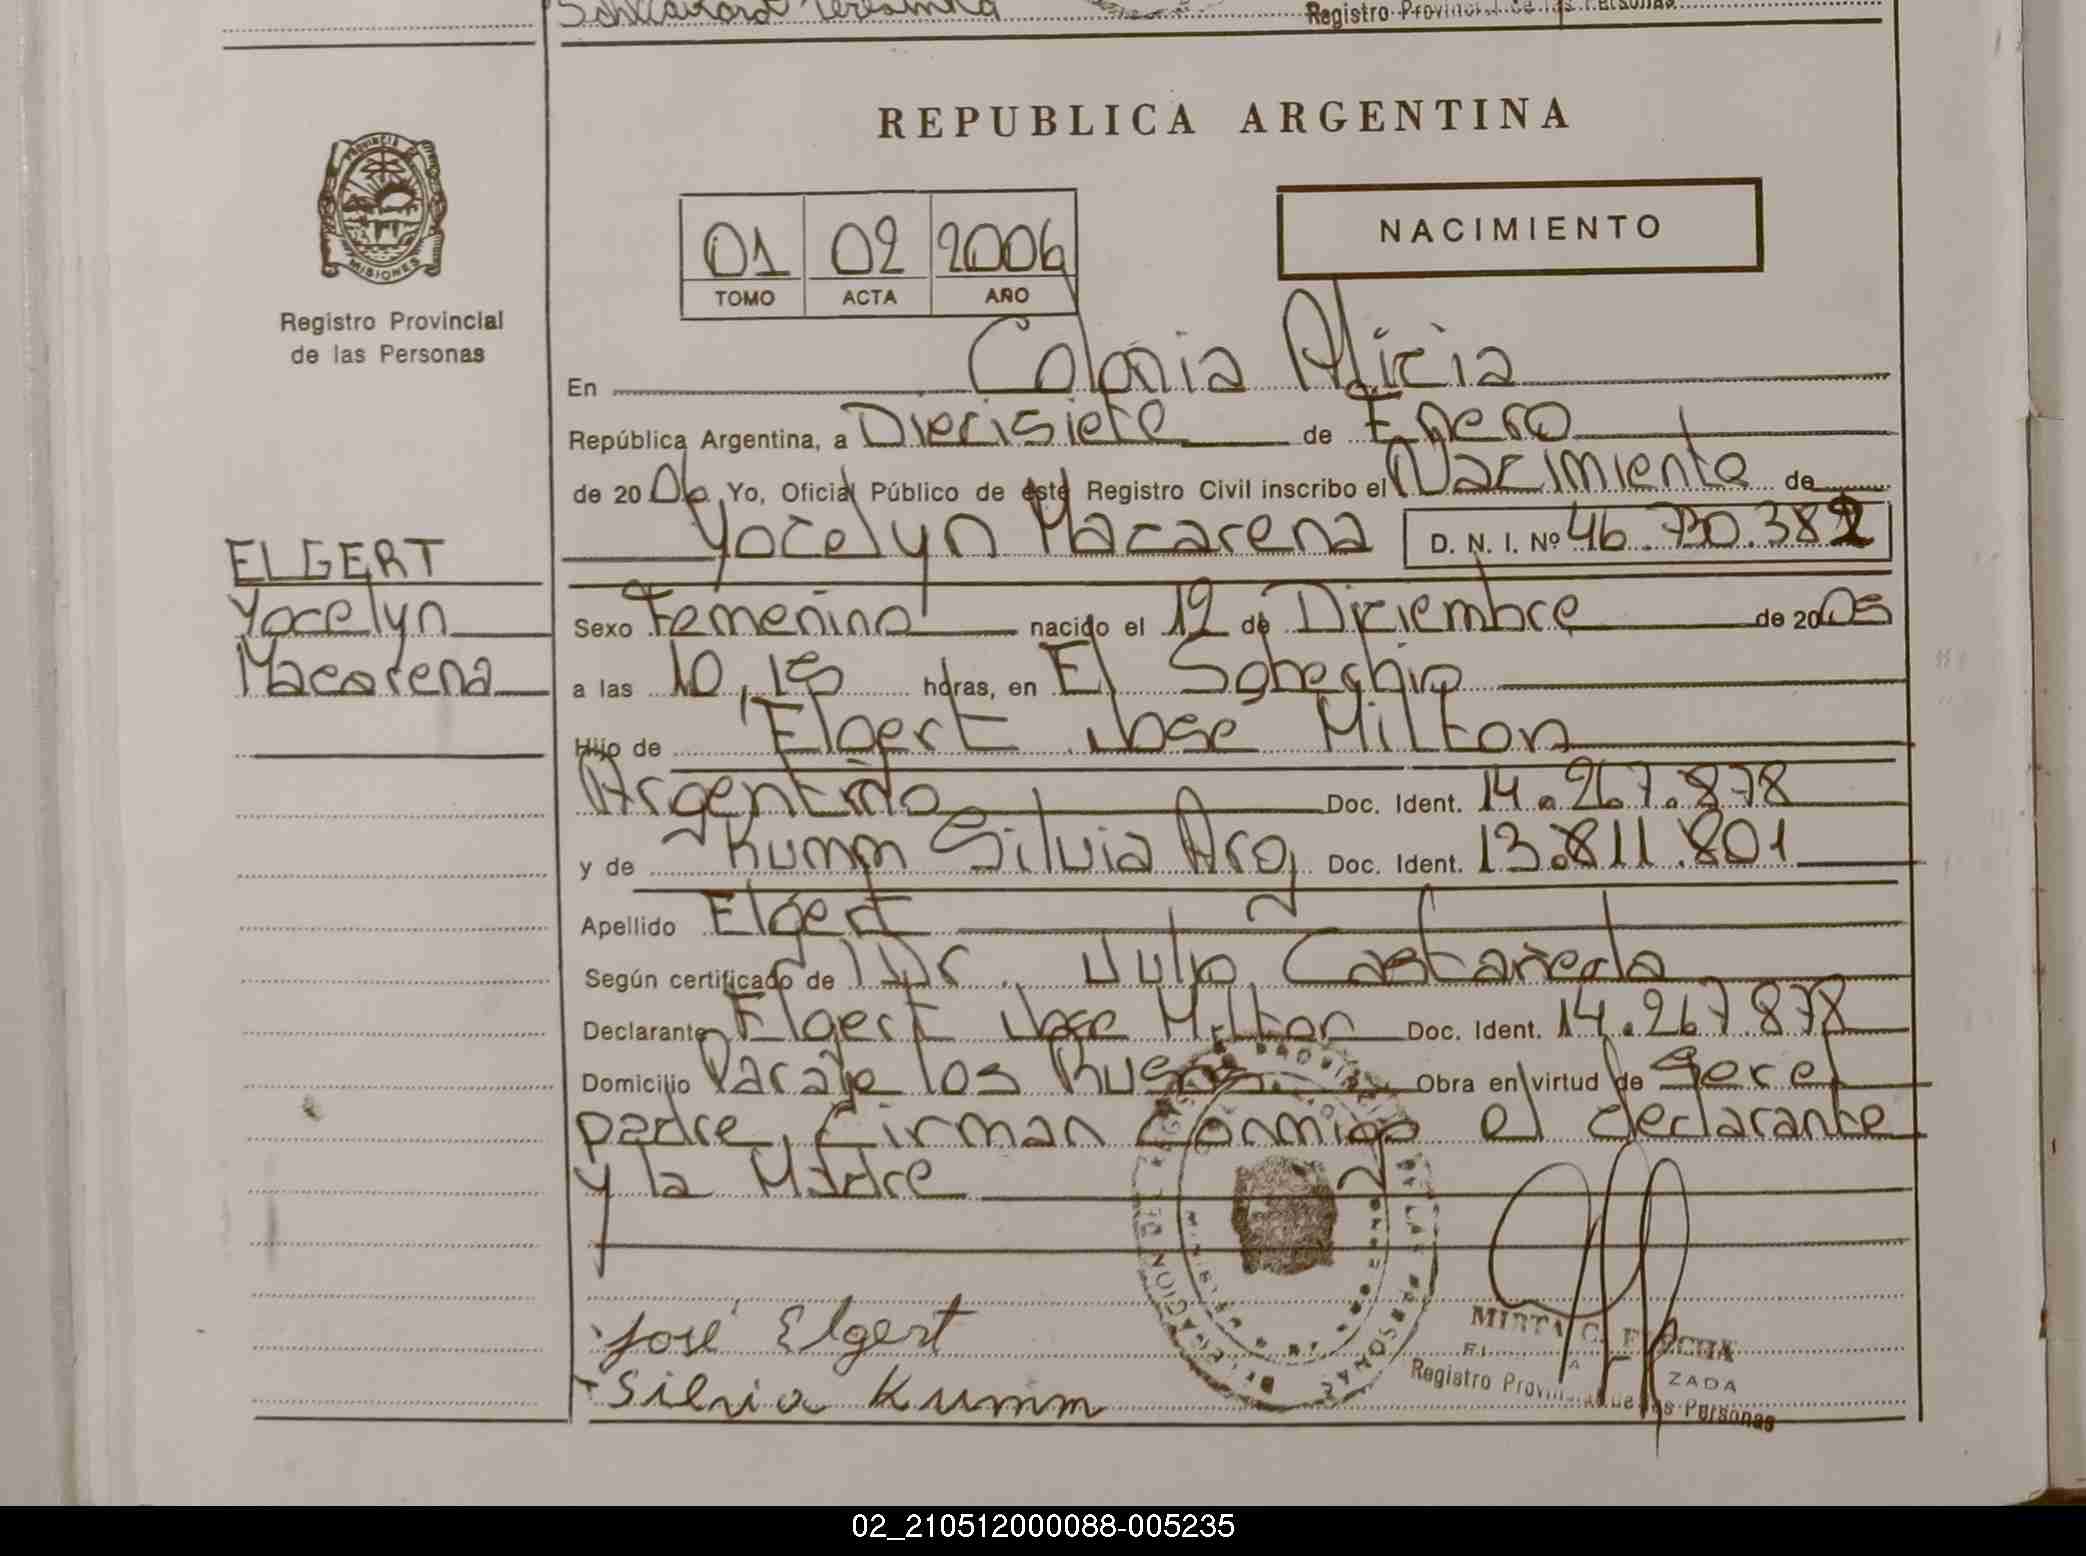 Registro Provincial de las Personas
REPUBLICA ARGENTINA
PROVINCIA DE
MISIONES
Registro Provincial
de las Personas
01 02 2006
TOMO ACTA AÑO
NACIMIENTO
En Colonia Alicia
República Argentina, a Diecisiete de Enero
de 2006 Yo, Oficial Público de este Registro Civil inscribo el Nacimiento de
Yocelyn Macarena D. N. I. Nº 46.730.382
ELGERT
Yocelyn
Macarena
Sexo Femenino nacido el 12 de Diciembre de 2005
a las 10,15 horas, en El Soberbio
Hijo de Elgert Jose Milton
Argentino Doc. Ident. 14.267.878
y de Kumm Silvia Arg. Doc. Ident. 13.811.801
Apellido Elgert
Según certificado de Dr. Julio Castañeda
Declarante Elgert Jose Milton Doc. Ident. 14.267.878
Domicilio Paraje los Rusos Obra en virtud de Ser el
padre, Firman Conmigo el declarante
y la Madre
José Elgert
Silvia Kumm
MIRTA C.
Registro Provincial de las Personas
02_210512000088-005235